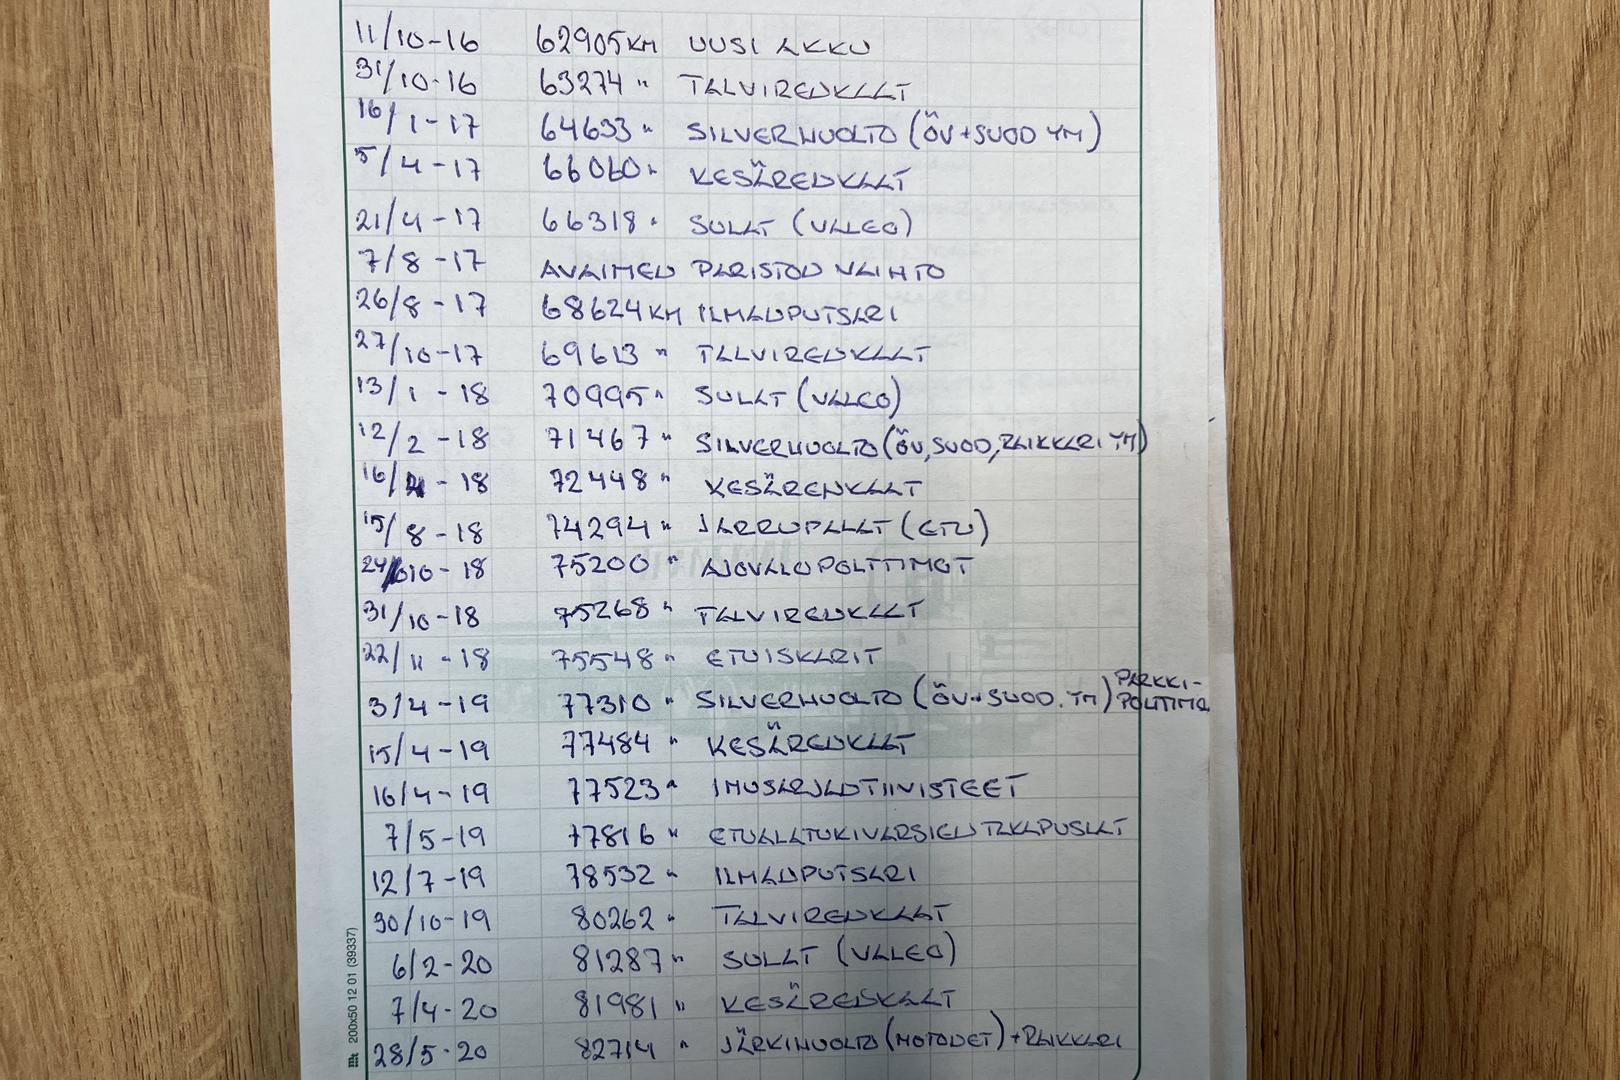 11/10-16 62905KM UUSI AKKU
31/10-16 63274 " TALVIRENKAAT
16/1-17 64633 " SILVERHUOLTO (ÖV+SUOD YM)
5/4-17 66060 " KESÄRENKAAT
21/4-17 66318 " SULAT (VALEO)
7/8-17 AVAIMEN PARISTON VAIHTO
26/8-17 68624KM ILMANPUTSARI
27/10-17 69613 " TALVIRENKAAT
13/1-18 70995 " SULAT (VALEO)
12/2-18 71467 " SILVERHUOLTO (ÖV, SUOD, RAIKKARI YM)
16/4-18 72448 " KESÄRENKAAT
15/8-18 74294 " JARRUPALAT (ETU)
24/10-18 75200 " AJOVALOPOLTTIMOT
31/10-18 75268 " TALVIRENKAAT
22/11-18 75548 " ETUISKARIT
3/4-19 77310 " SILVERHUOLTO (ÖV+SUOD. YM) PARKKI-
POLTTIMO
15/4-19 77484 " KESÄRENKAAT
16/4-19 77523 " IMUSARJANTIIVISTEET
7/5-19 77816 " ETUALATUKIVARSIEN TAKAPUSLAT
12/7-19 78532 " ILMANPUTSARI
30/10-19 80262 " TALVIRENKAAT
6/2-20 81287 " SULAT (VALEO)
7/4-20 81981 " KESÄRENKAAT
28/5-20 82714 " JÄRKIHUOLTO (MOTONET) + RAIKKARI
mt 200x50 12 01 (39337)